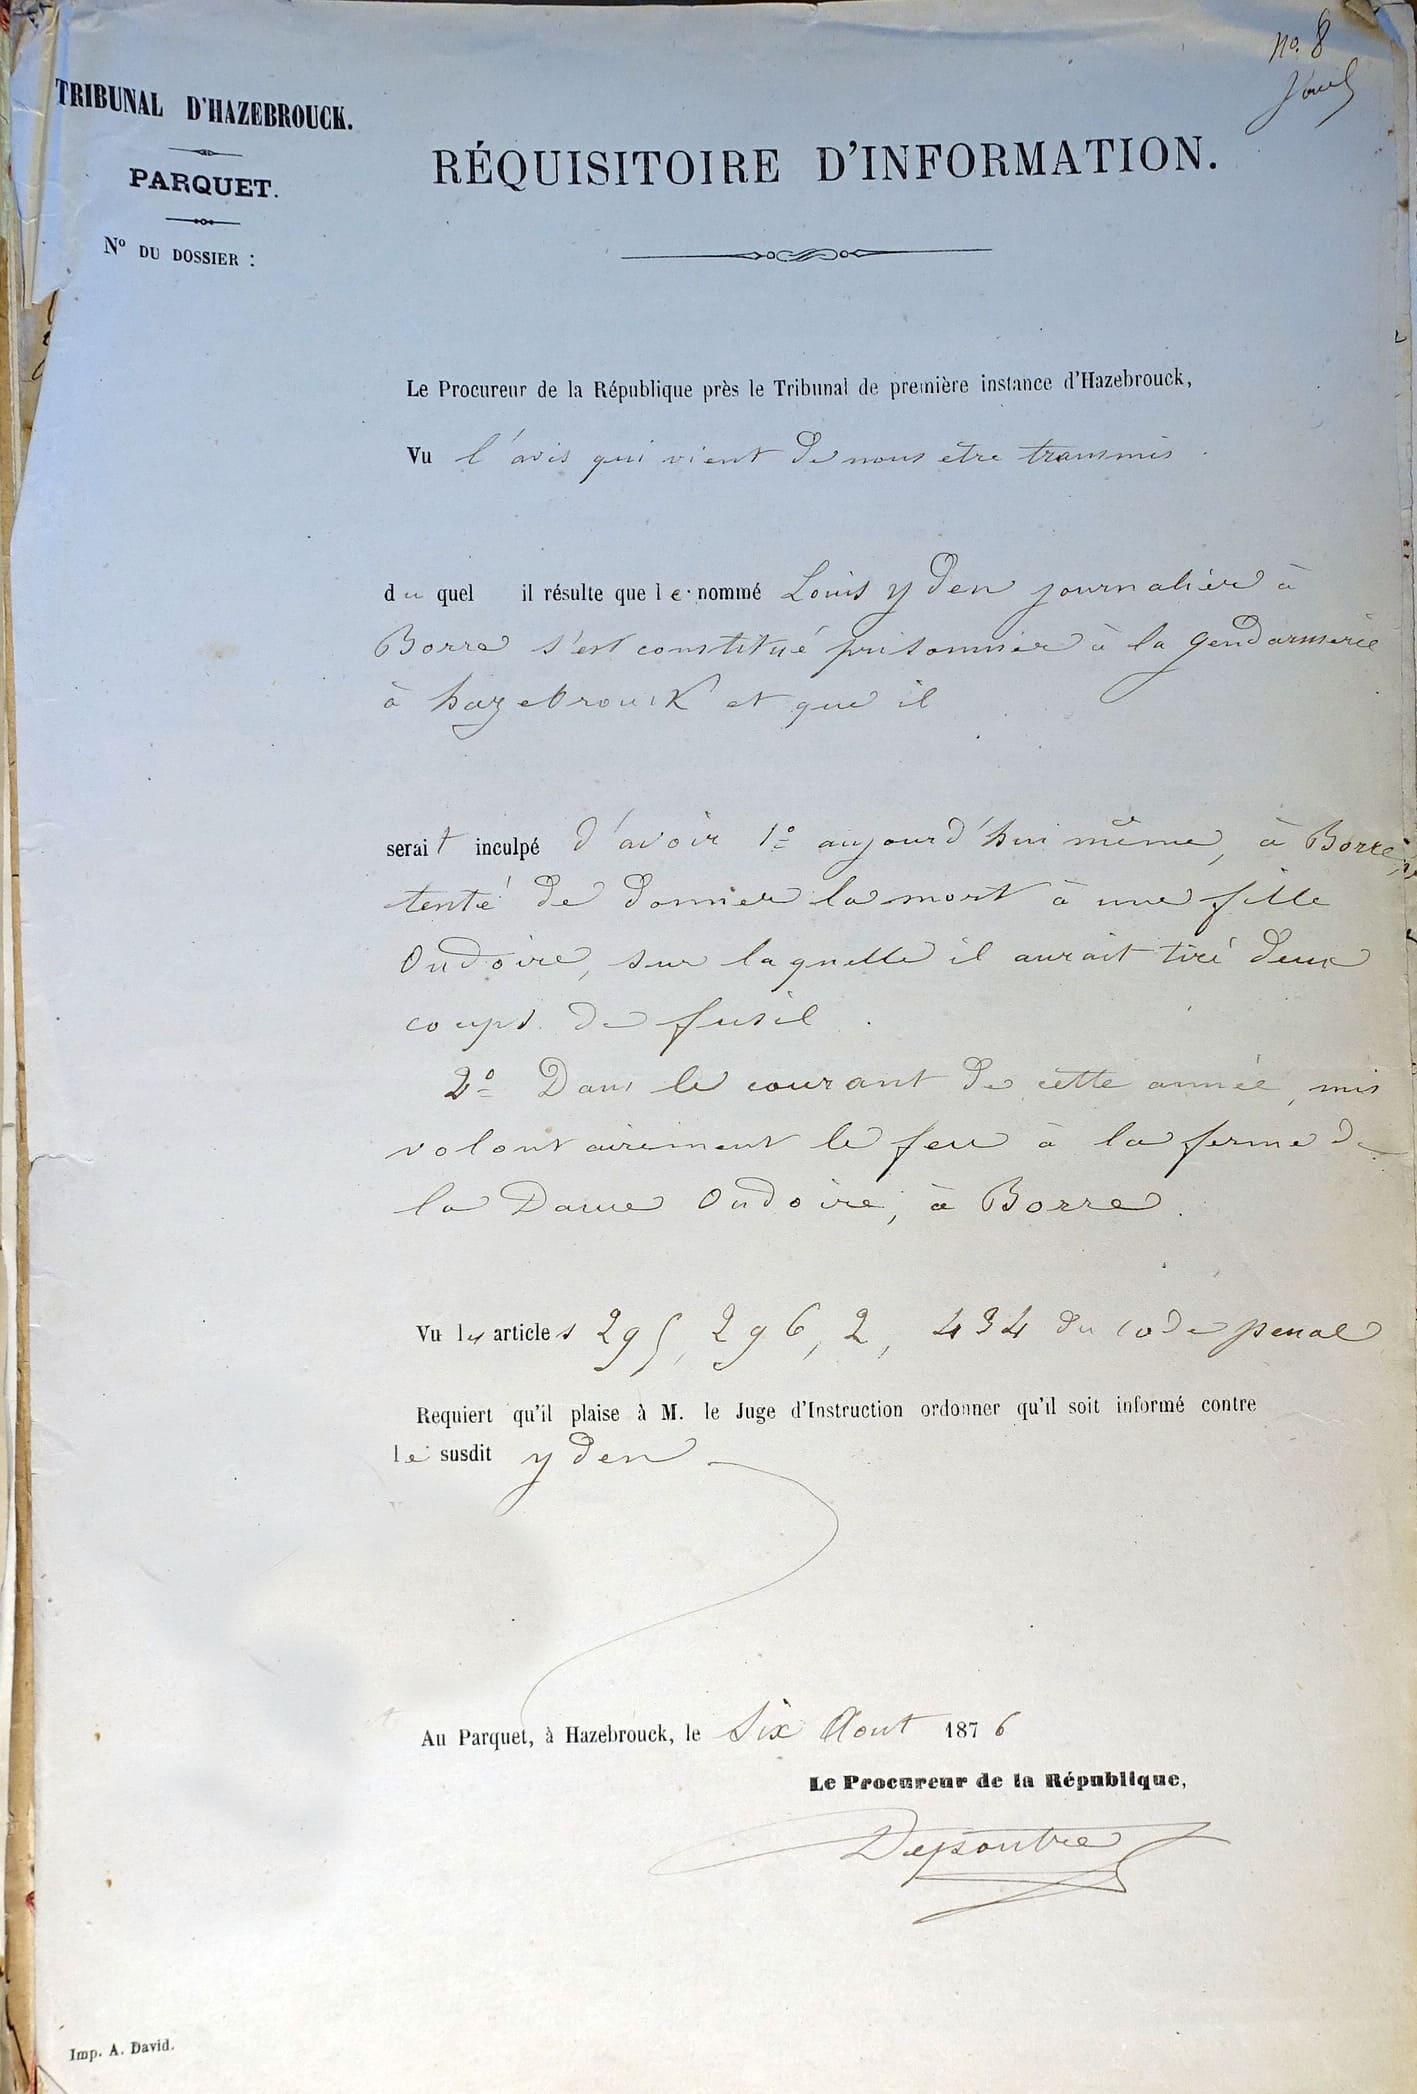 no. 8
TRIBUNAL D'HAZEBROUCK.
PARQUET.
No DU DOSSIER :
RÉQUISITOIRE D'INFORMATION.
Le Procureur de la République près le Tribunal de première instance d'Hazebrouck,
Vu l'avis qui vient de nous être transmis
du quel il résulte que le nommé Louis yden journalier à
Borre s'est constitué prisonnier à la gendarmerie
à hazebrouck et que il
serait inculpé d'avoir 1o aujourd'hui même, à Borre,
tenté de donner la mort à une fille
Oudoire, sur laquelle il aurait tiré deux
coups de fusil.
2o Dans le courant de cette année, mis
volontairement le feu à la ferme de
la Dame Oudoire, à Borre.
Vu les articles 295, 296, 2, 434 du code pénal
Requiert qu'il plaise à M. le Juge d'Instruction ordonner qu'il soit informé contre
le susdit yden
Au Parquet, à Hazebrouck, le Six Aout 1876
Le Procureur de la République,
Depoutre
Imp. A. David.